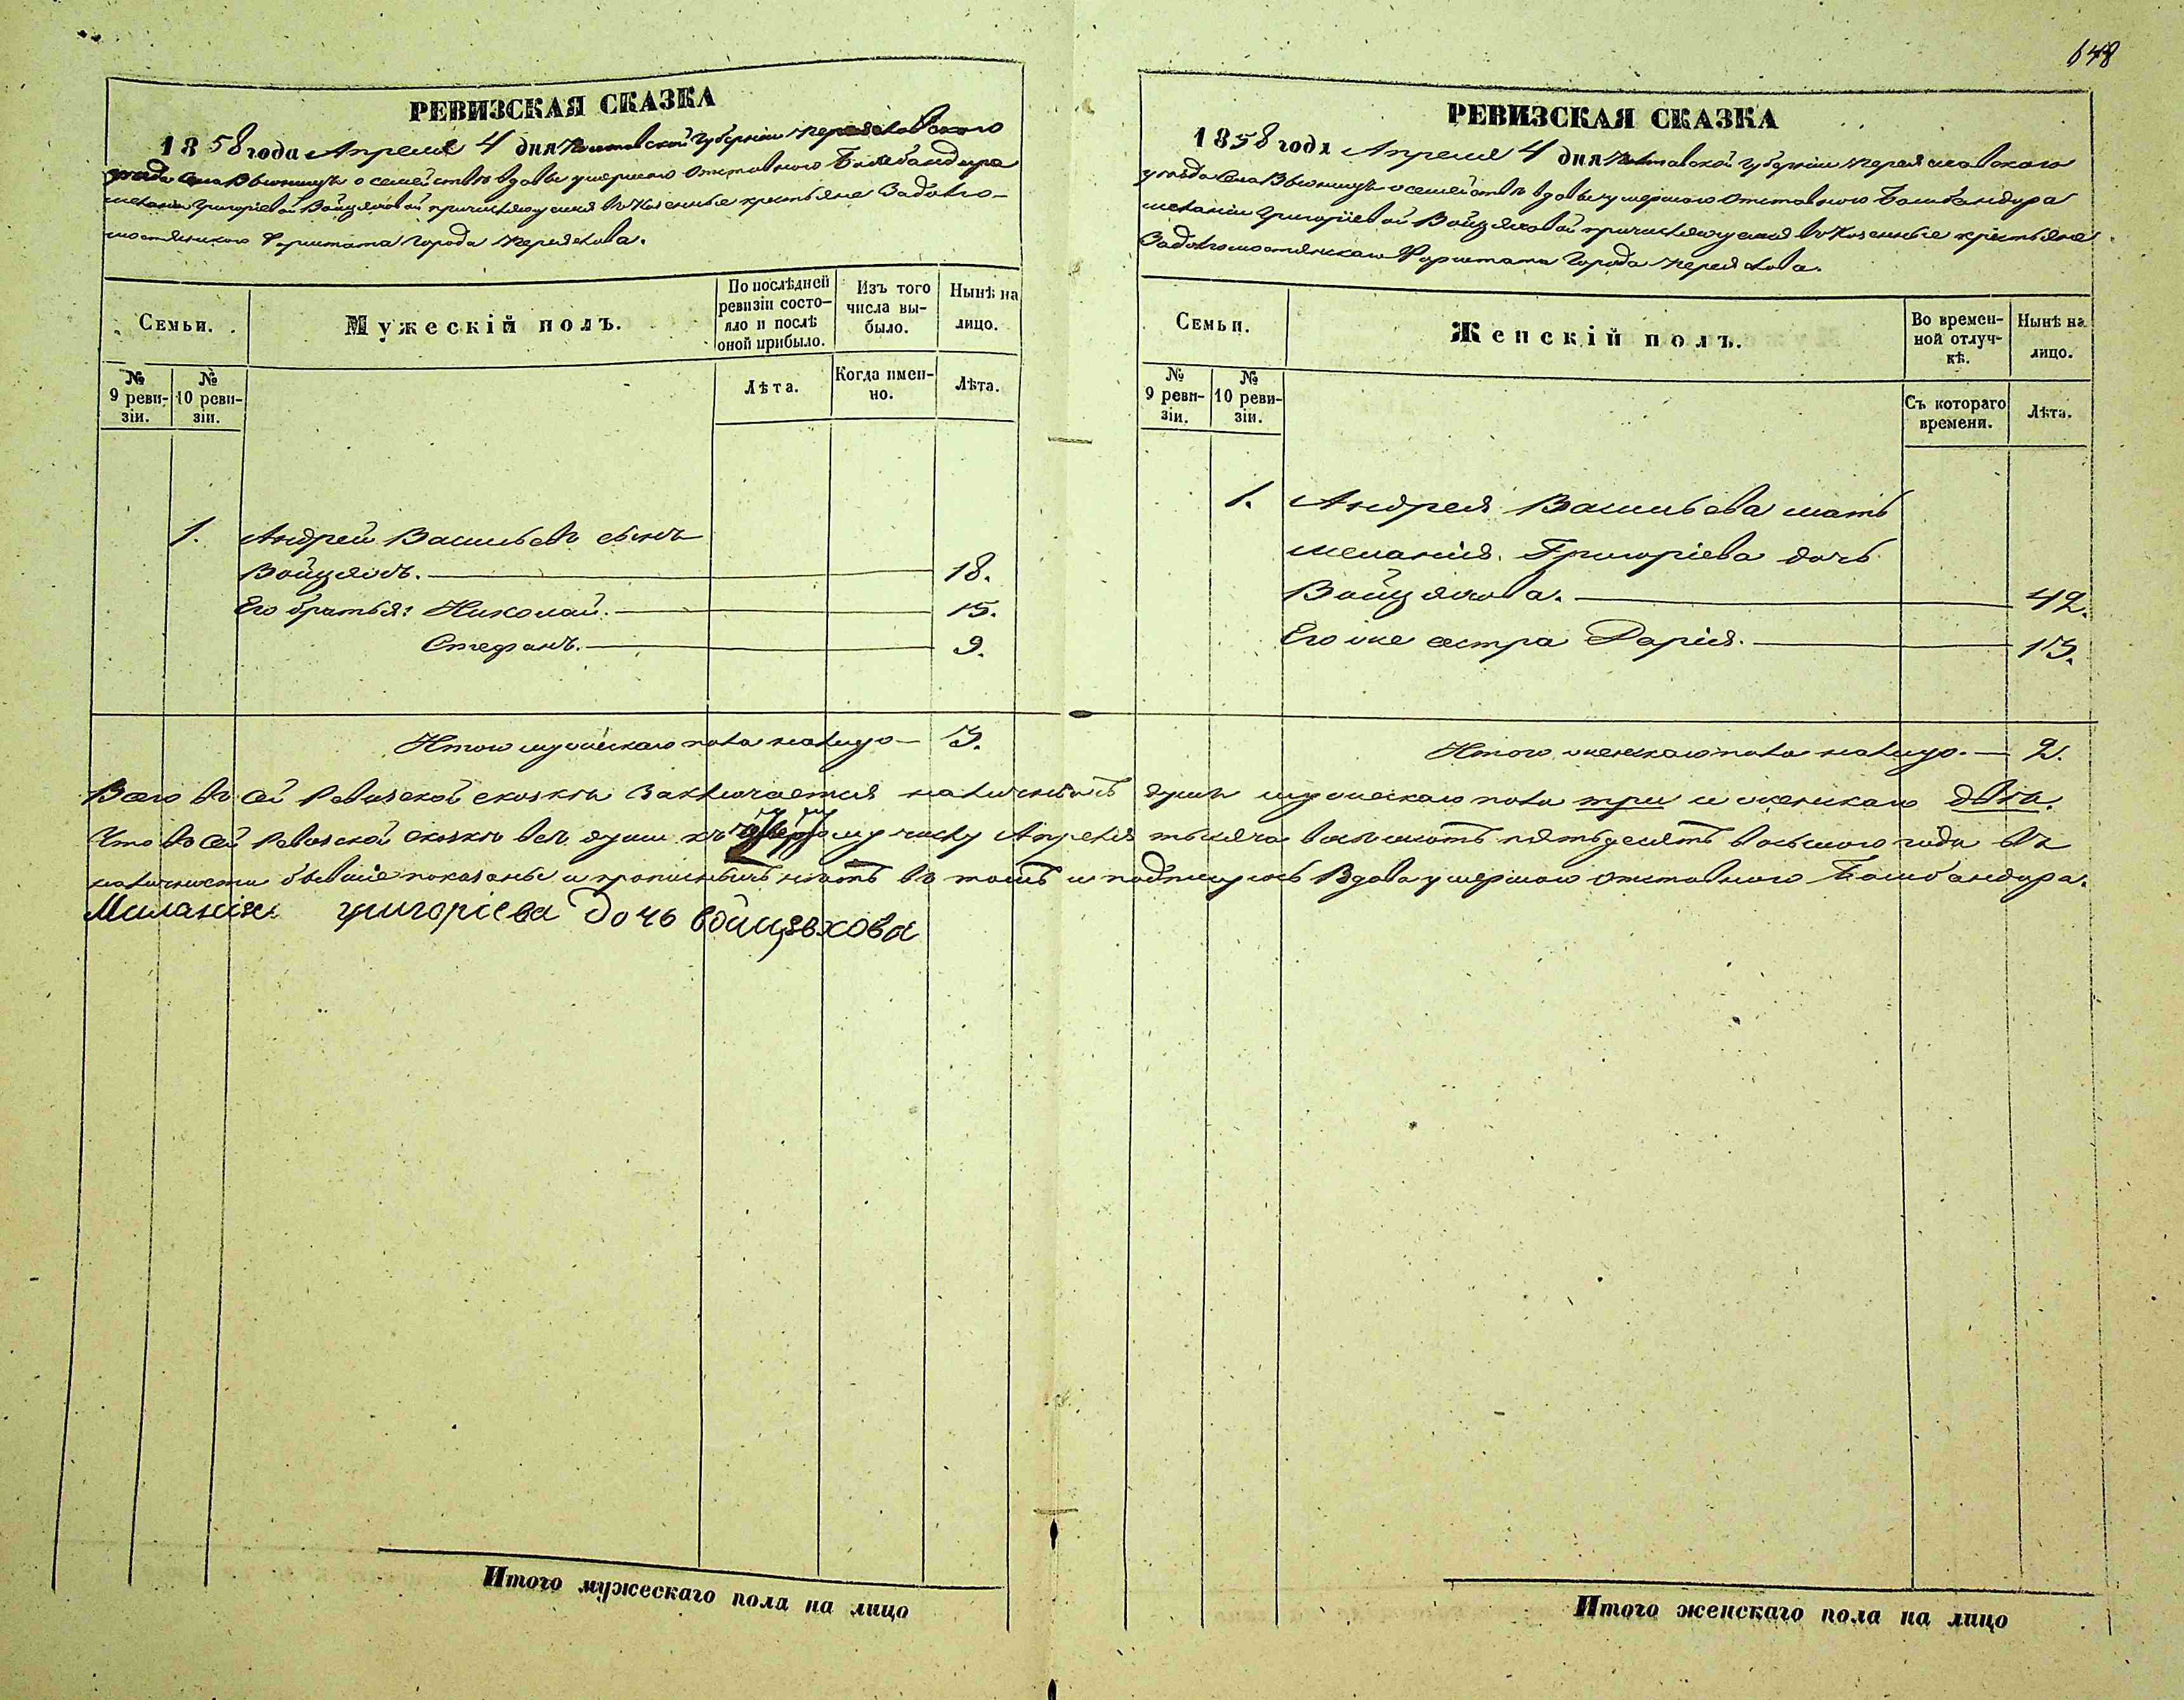 648
РЕВИЗСКАЯ СКАЗКА
1858 года Апреля 4 дня Полтавской Губерніи Переяславского
уезда Села Вьюнищъ о семействѣ вдовы умершаго отставного Бомбандира
Меланіи Григоріевой Войцяховой причисляющемся въ Казенные крестьяне Задолго-
мостянского Форштата Города Переяслова.
Семьи.
Мужескій полъ.
По послѣдней ревизіи состо-
яло и послѣ оной прибыло.
Изъ того числа вы-
было.
Нынѣ на лицо.
№ 9 реви-
зіи.
№ 10 реви-
зіи.
Лѣта.
Когда имен-
но.
Лѣта.
1. Андрей Васильевъ сынъ
Войцяхъ. 18.
Его братья: Николай. 15.
Стефанъ. 9.
Итого мужескаго пола налицо 3.
РЕВИЗСКАЯ СКАЗКА
1858 года Апреля 4 дня Полтавской Губерніи Переяславского
уезда Села Вьюнищъ о семействѣ вдовы умершаго отставного Бомбандира
Меланіи Григоріевой Войцяховой причисляющемся въ Казенные крестьяне
Задолгомостянскаго Форштата Города Переяслова.
Семьи.
Женскій полъ.
Во времен-
ной отлуч-
кѣ.
Нынѣ на лицо.
№ 9 реви-
зіи.
№ 10 реви-
зіи.
Съ котораго времени.
Лѣта.
1. Андрея Васильева мать
Меланія Григоріева дочь
Войцяхова. 42.
Его же сестра Дарія. 13.
Итого женскаго пола налицо. 2.
Всего въ сей Ревизской сказкѣ заключается наличныхъ душъ мужескаго пола три и женскаго двѣ.
Что въ сей Ревизской сказкѣ всѣ души къ числу Апреля тысяча восемьсотъ пятьдесятъ восьмого года въ
наличности бывшіе показаны и прописныхъ нѣтъ въ томъ и подпишусь Вдова умершаго отставного Бомбандира.
Миланія григоріева дочь войцяхова
Итого мужескаго пола на лицо
Итого женскаго пола на лицо